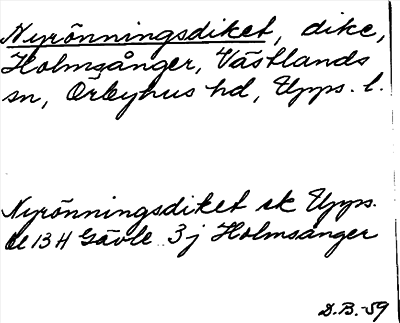 Nyrönningsdiket, dike,
Holmsånger, Västlands
sn, Örbyhus hd, Upps. l.
Nyrönningsdiket ek Upps.
13 H Gävle 3j Holmsånger
D.B.-59